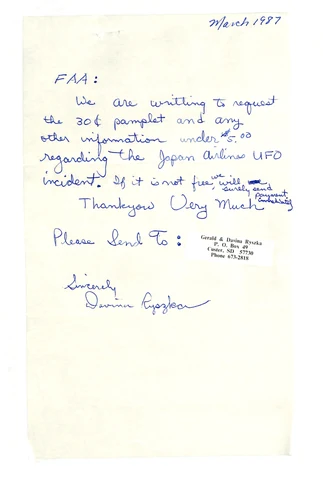 March 1987
FAA:
We are writting to request
the 30¢ pamplet and any
other information under $5.00
regarding the Japan Airlines UFO
incident. If it is not free we will surely send
payment immediately
Thankyou Very Much
Please Send To:
Gerald & Davina Ryszka
P. O. Box 49
Custer, SD 57730
Phone 673-2818
Sincerely
Davina Ryszka